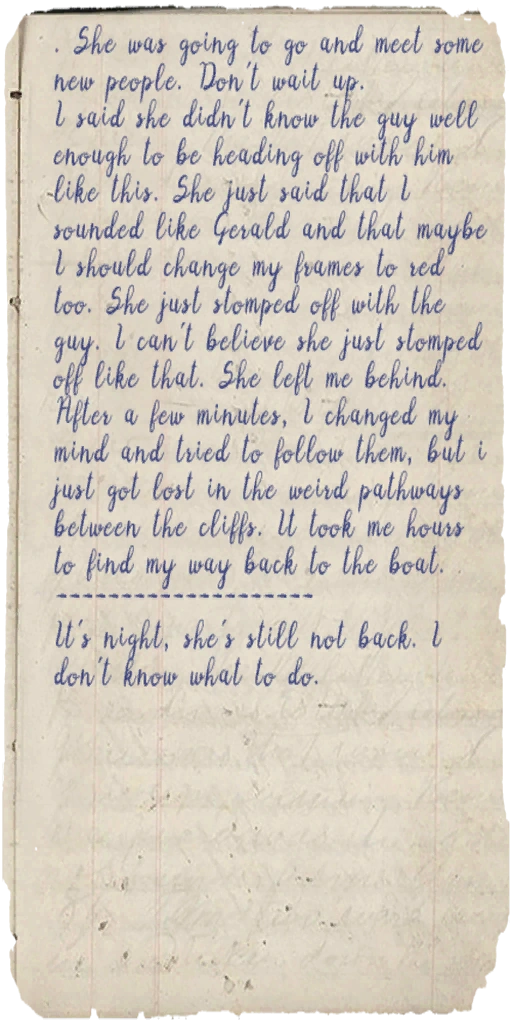 . She was going to go and meet some
new people. Don't wait up.
I said she didn't know the guy well
enough to be heading off with him
like this. She just said that I
sounded like Gerald and that maybe
I should change my frames to red
too. She just stomped off with the
guy. I can't believe she just stomped
off like that. She left me behind.
After a few minutes, I changed my
mind and tried to follow them, but i
just got lost in the weird pathways
between the cliffs. It took me hours
to find my way back to the boat.
--------------------
It's night, she's still not back. I
don't know what to do.